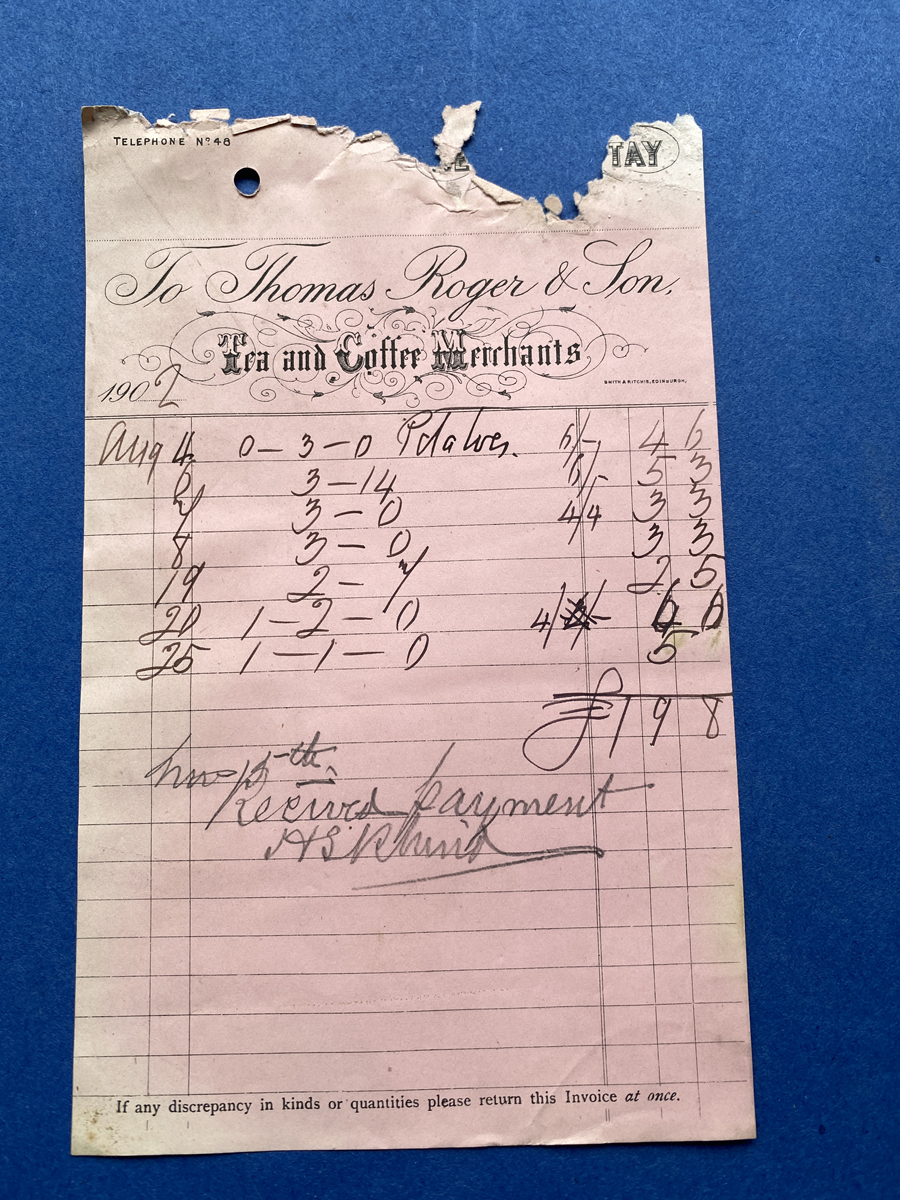 TELEPHONE No. 48
TAY
To Thomas Roger & Son,
Tea and Coffee Merchants
SMITH & RITCHIE, EDINBURGH.
1902
Aug 4 0 – 3 – 0 Potatoes. 6/-, 4 6
6 3 – 14 6/- 5 3
7 3 – 0 4/4 3 3
8 3 – 0 3 3
19 2 – 7 2 5
20 1 – 2 – 0 4/ 6
25 1 – 1 – 0 5
£1 9 8
Received payment
If any discrepancy in kinds or quantities please return this Invoice at once.